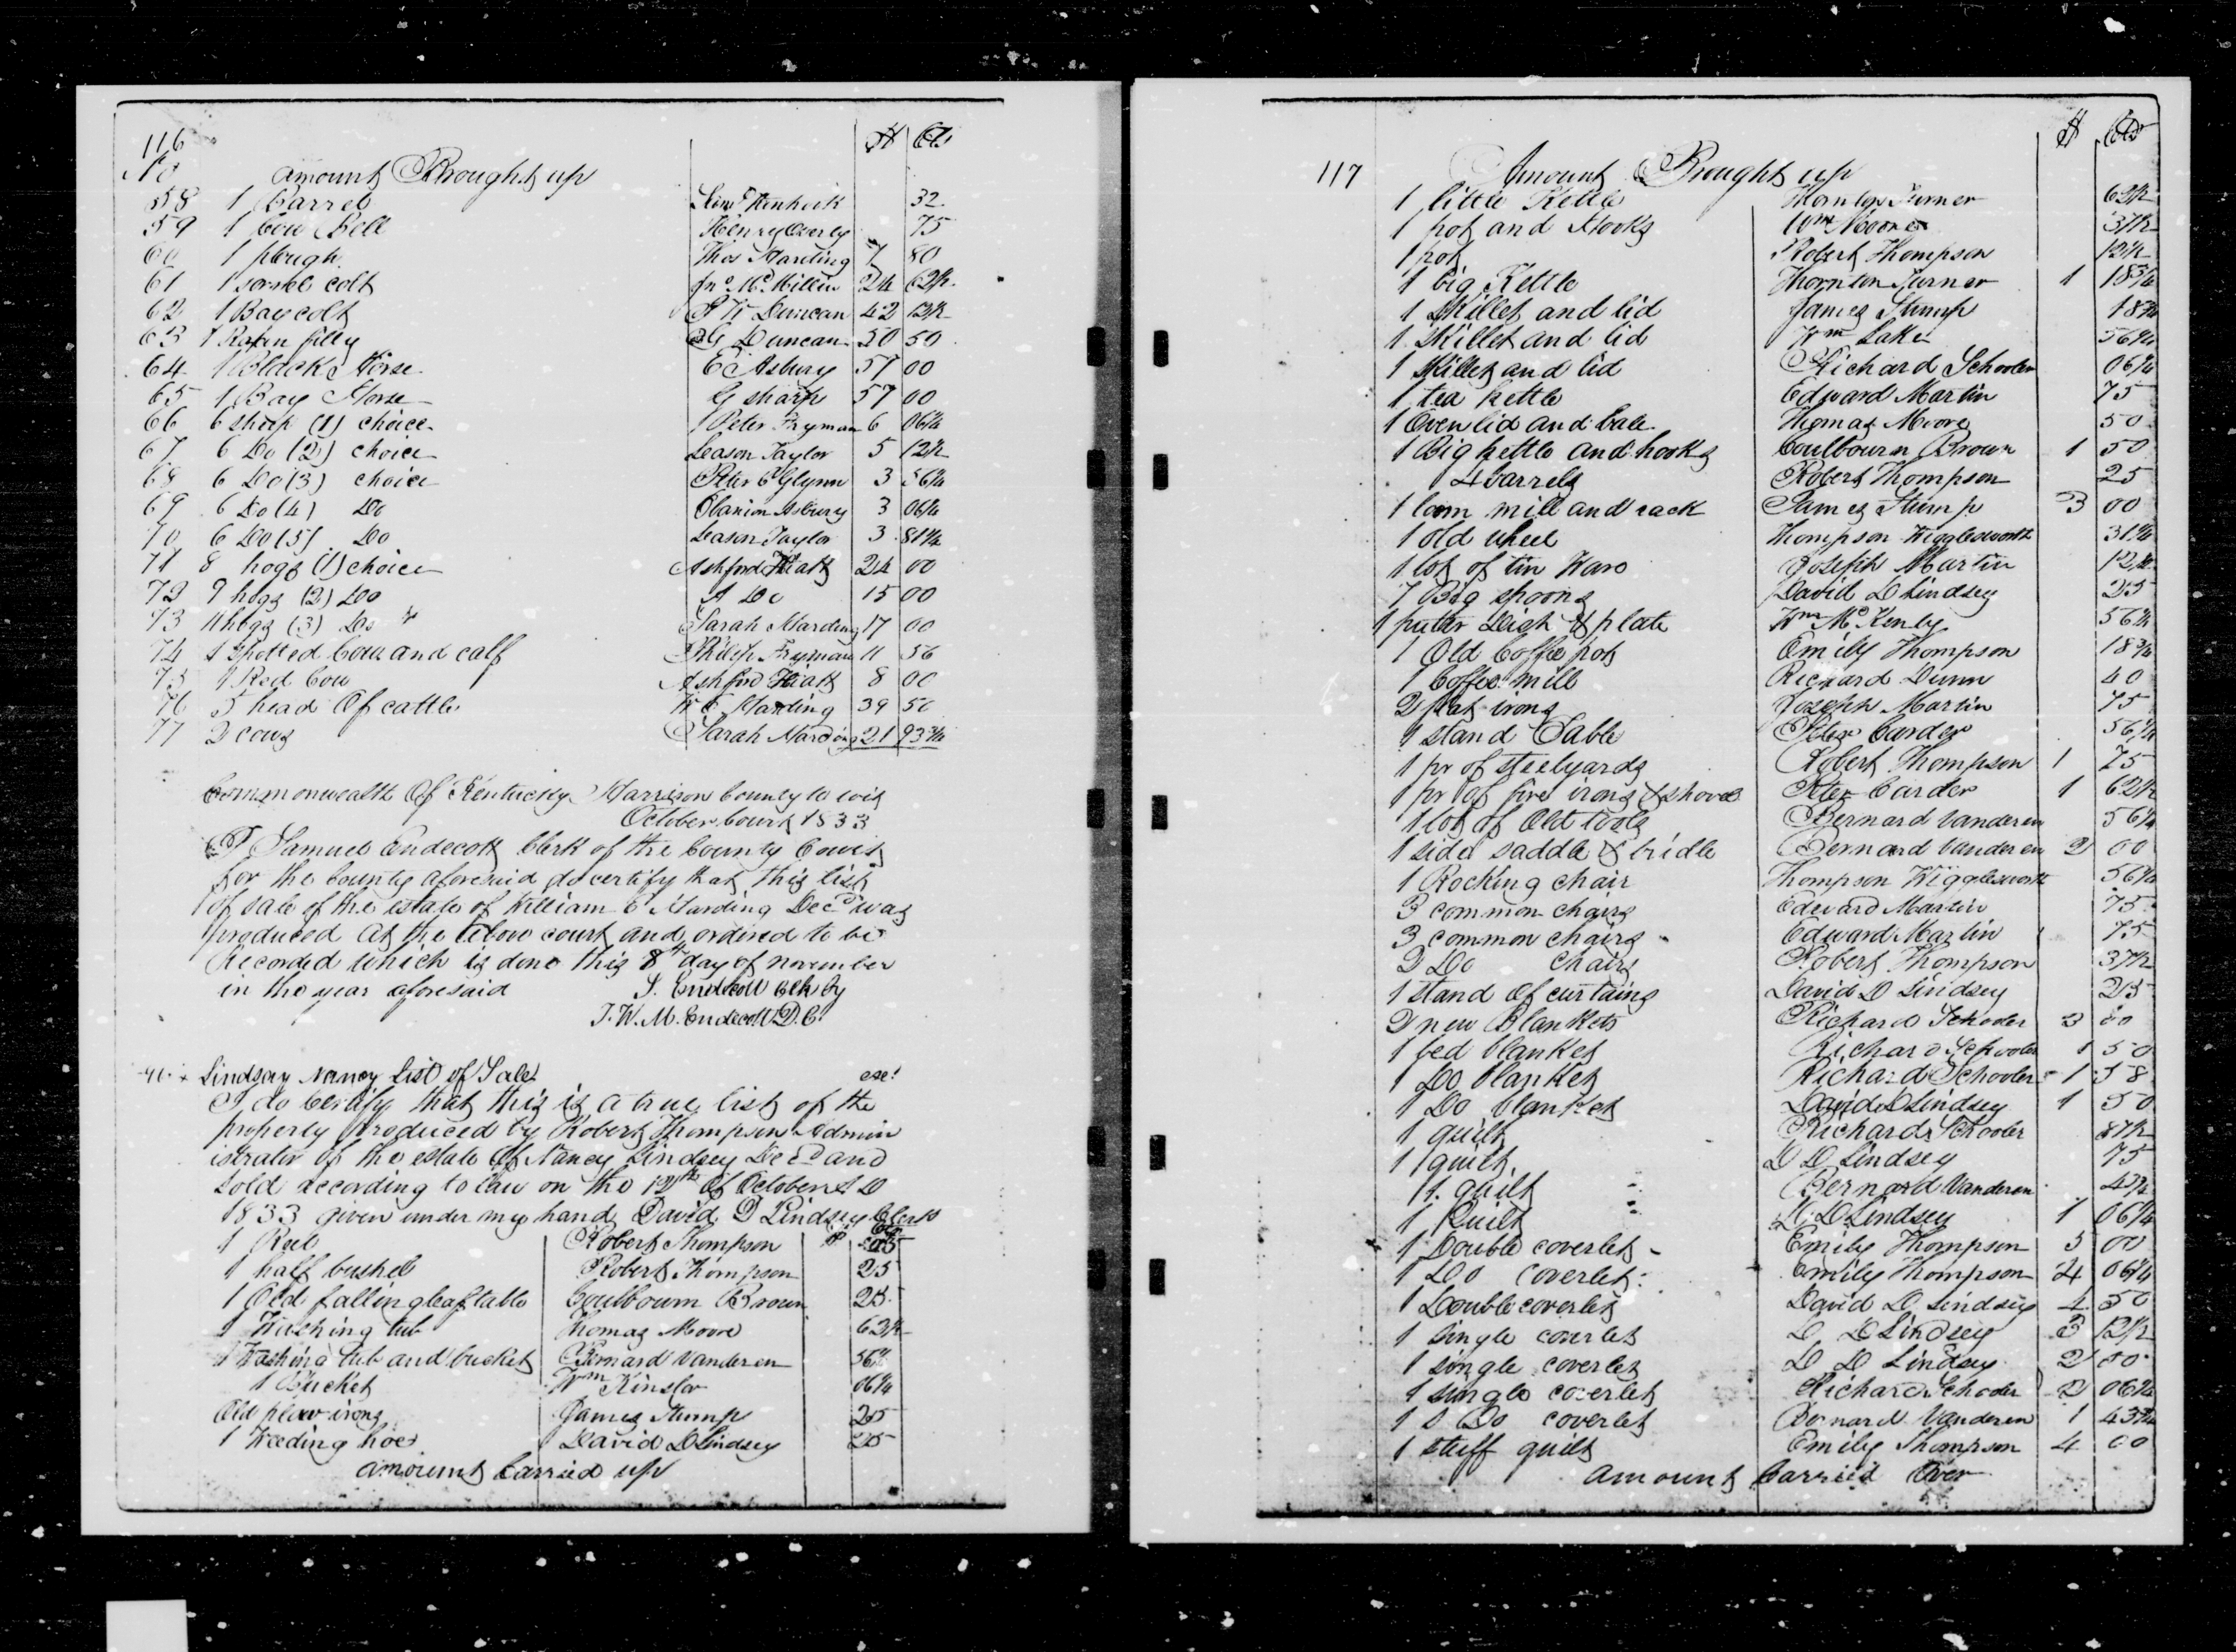 116
No amount Brought up $ Cts
58 1 Barrel 32
59 1 Cow Bell Henry Overly 75
60 1 plough Thos Harding 7 80
61 1 sorrel colt Jno McMillin 24 62½
62 1 Bay colt Duncan 42 12½
63 1 filly G Duncan 50
64 1 Black Horse E Asbury 57 00
65 1 Bay Horse G sharp 57 00
66 6 sheep (1) choice Peter Fryman 6 06¼
67 6 Do (2) choice Leason Taylor 5 12½
68 6 Do (3) choice Peter C Glynn 3 56¼
69 6 Do (4) Do Clarion Asbury 3 06¼
70 6 Do (5) Do Leason Taylor 3 81¼
71 8 hogs (1) choice Ashford Hiatt 24 00
72 9 hogs (2) Do A Do 15 00
73 11 hogs (3) Do Sarah Harding 17 00
74 1 Spotted Cow and calf Philip Fryman 11 56
75 1 Red Cow Ashford Hiatt 8 00
76 5 head Of cattle W C Harding 39 50
77 2 cows Sarah Harding 21 93¾
Commonwealth Of Kentucky Harrison County to wit
October Court 1833
I Samuel Endecott Clerk of the County Court
for the County aforesaid do certify that this list
of sale of the estate of William C Harding Decd was
produced at the above court and ordired to be
Recorded which is done this 8th day of november
in the year aforesaid S. Endecott Clk by
J. W. M. Endecott D.C.
Lindsay Nancy List of Sale
I do Certify that this is a true list of the
property produced by Robert Thompson Admin
istrator of the estate Of Nancy Lindsey Decd and
sold according to law on the 12th Of October A D
1833 given under my hand David D Lindsey Clerk
1 Reel Robert Thompson $ Cts
1 half bushel Robert Thompson 25
1 Old falling leaf table Coulbourn Brown 25
1 Washing tub Thomas Moore 62½
1 Washing tub and bucket Bernard Vanderen 56¼
1 Bucket Wm Kinslor 06¼
Old plow irons James Stump 25
1 Weeding hoe David D Lindsey 25
amount Carried up
117 Amount Brought up $ Cts
1 little Kettle Thornton Turner 62½
1 pot and Hooks Wm Moore 37½
1 pot Robert Thompson 12½
1 big Kettle Thornton Turner 1 18¾
1 Skillet and lid James Stump 18¾
1 Skillet and lid Wm Lake 56¼
1 Skillet and lid Richard Schooler 06¼
1 tea kettle Edward Martin 75
1 Oven lid and bale Thomas Moore 50
1 Big kettle and hooks Coulbourn Brown 1 50
4 barrels Robert Thompson 25
1 loom mill and rack James Stump 3 00
1 old wheel Thompson Wigglesworth 31¼
1 lot of tin Ware Joseph Martin 12½
7 Big spoons David D Lindsey 25
1 puter Dish & plate Wm McKenly 56¼
1 Old Coffee pot Emily Thompson 18¾
1 Coffee mill Richard Dunn 40
2 flat irons Joseph Martin 75
1 stand Table Peter Carder 56¼
1 pr of steelyards Robert Thompson 1 75
1 pr of fire irons & shovel Peter Carder 1 62½
1 lot of Old tools Bernard Vanderen 56¼
1 side saddle & bridle Bernard Vanderen 2 00
1 Rocking chair Thompson Wigglesworth 56¼
3 common chairs Edward Martin 75
3 common chairs Edward Martin 75
2 Do Chairs Robert Thompson 37½
1 stand Of curtains David D Lindsey 25
2 new Blankets Richard Schooler 3
1 bed blanket Richard Schooler 1 50
1 Do blanket Richard Schooler 1 58
1 Do blanket David D Lindsey 1 50
1 quilt Richard Schooler 87½
1 quilt D D Lindsey 75
1 quilt Bernard Vanderen
1 Quilt D D Lindsey 1 06¼
1 Double coverlet Emily Thompson 5 00
1 Do coverlet Emily Thompson 4 06¼
1 Double coverlet David D Lindsey 4 50
1 single coverlet D D Lindsey 3 12½
1 single coverlet D D Lindsey 2 50
1 single coverlet Richard Schooler 2 06¼
1 S Do coverlet Bernard Vanderen 1 43¾
1 stuff quilt Emily Thompson 4 00
amount Carried Over